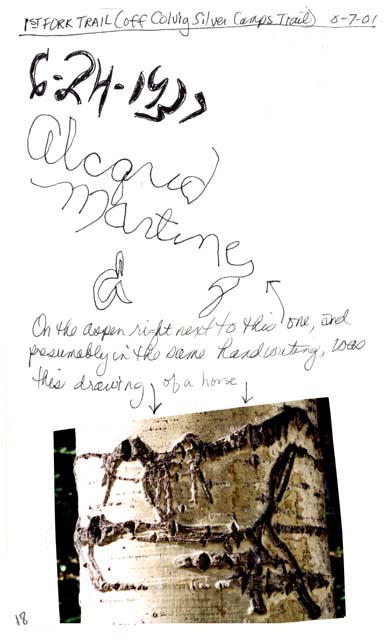 1ST FORK TRAIL (off Colvig Silver Camps Trail) 8-7-01
6-24-1937
Alcario
Martinez
d r
On the aspen right next to this one, and
presumably in the same handwriting, was
this drawing of a horse
18